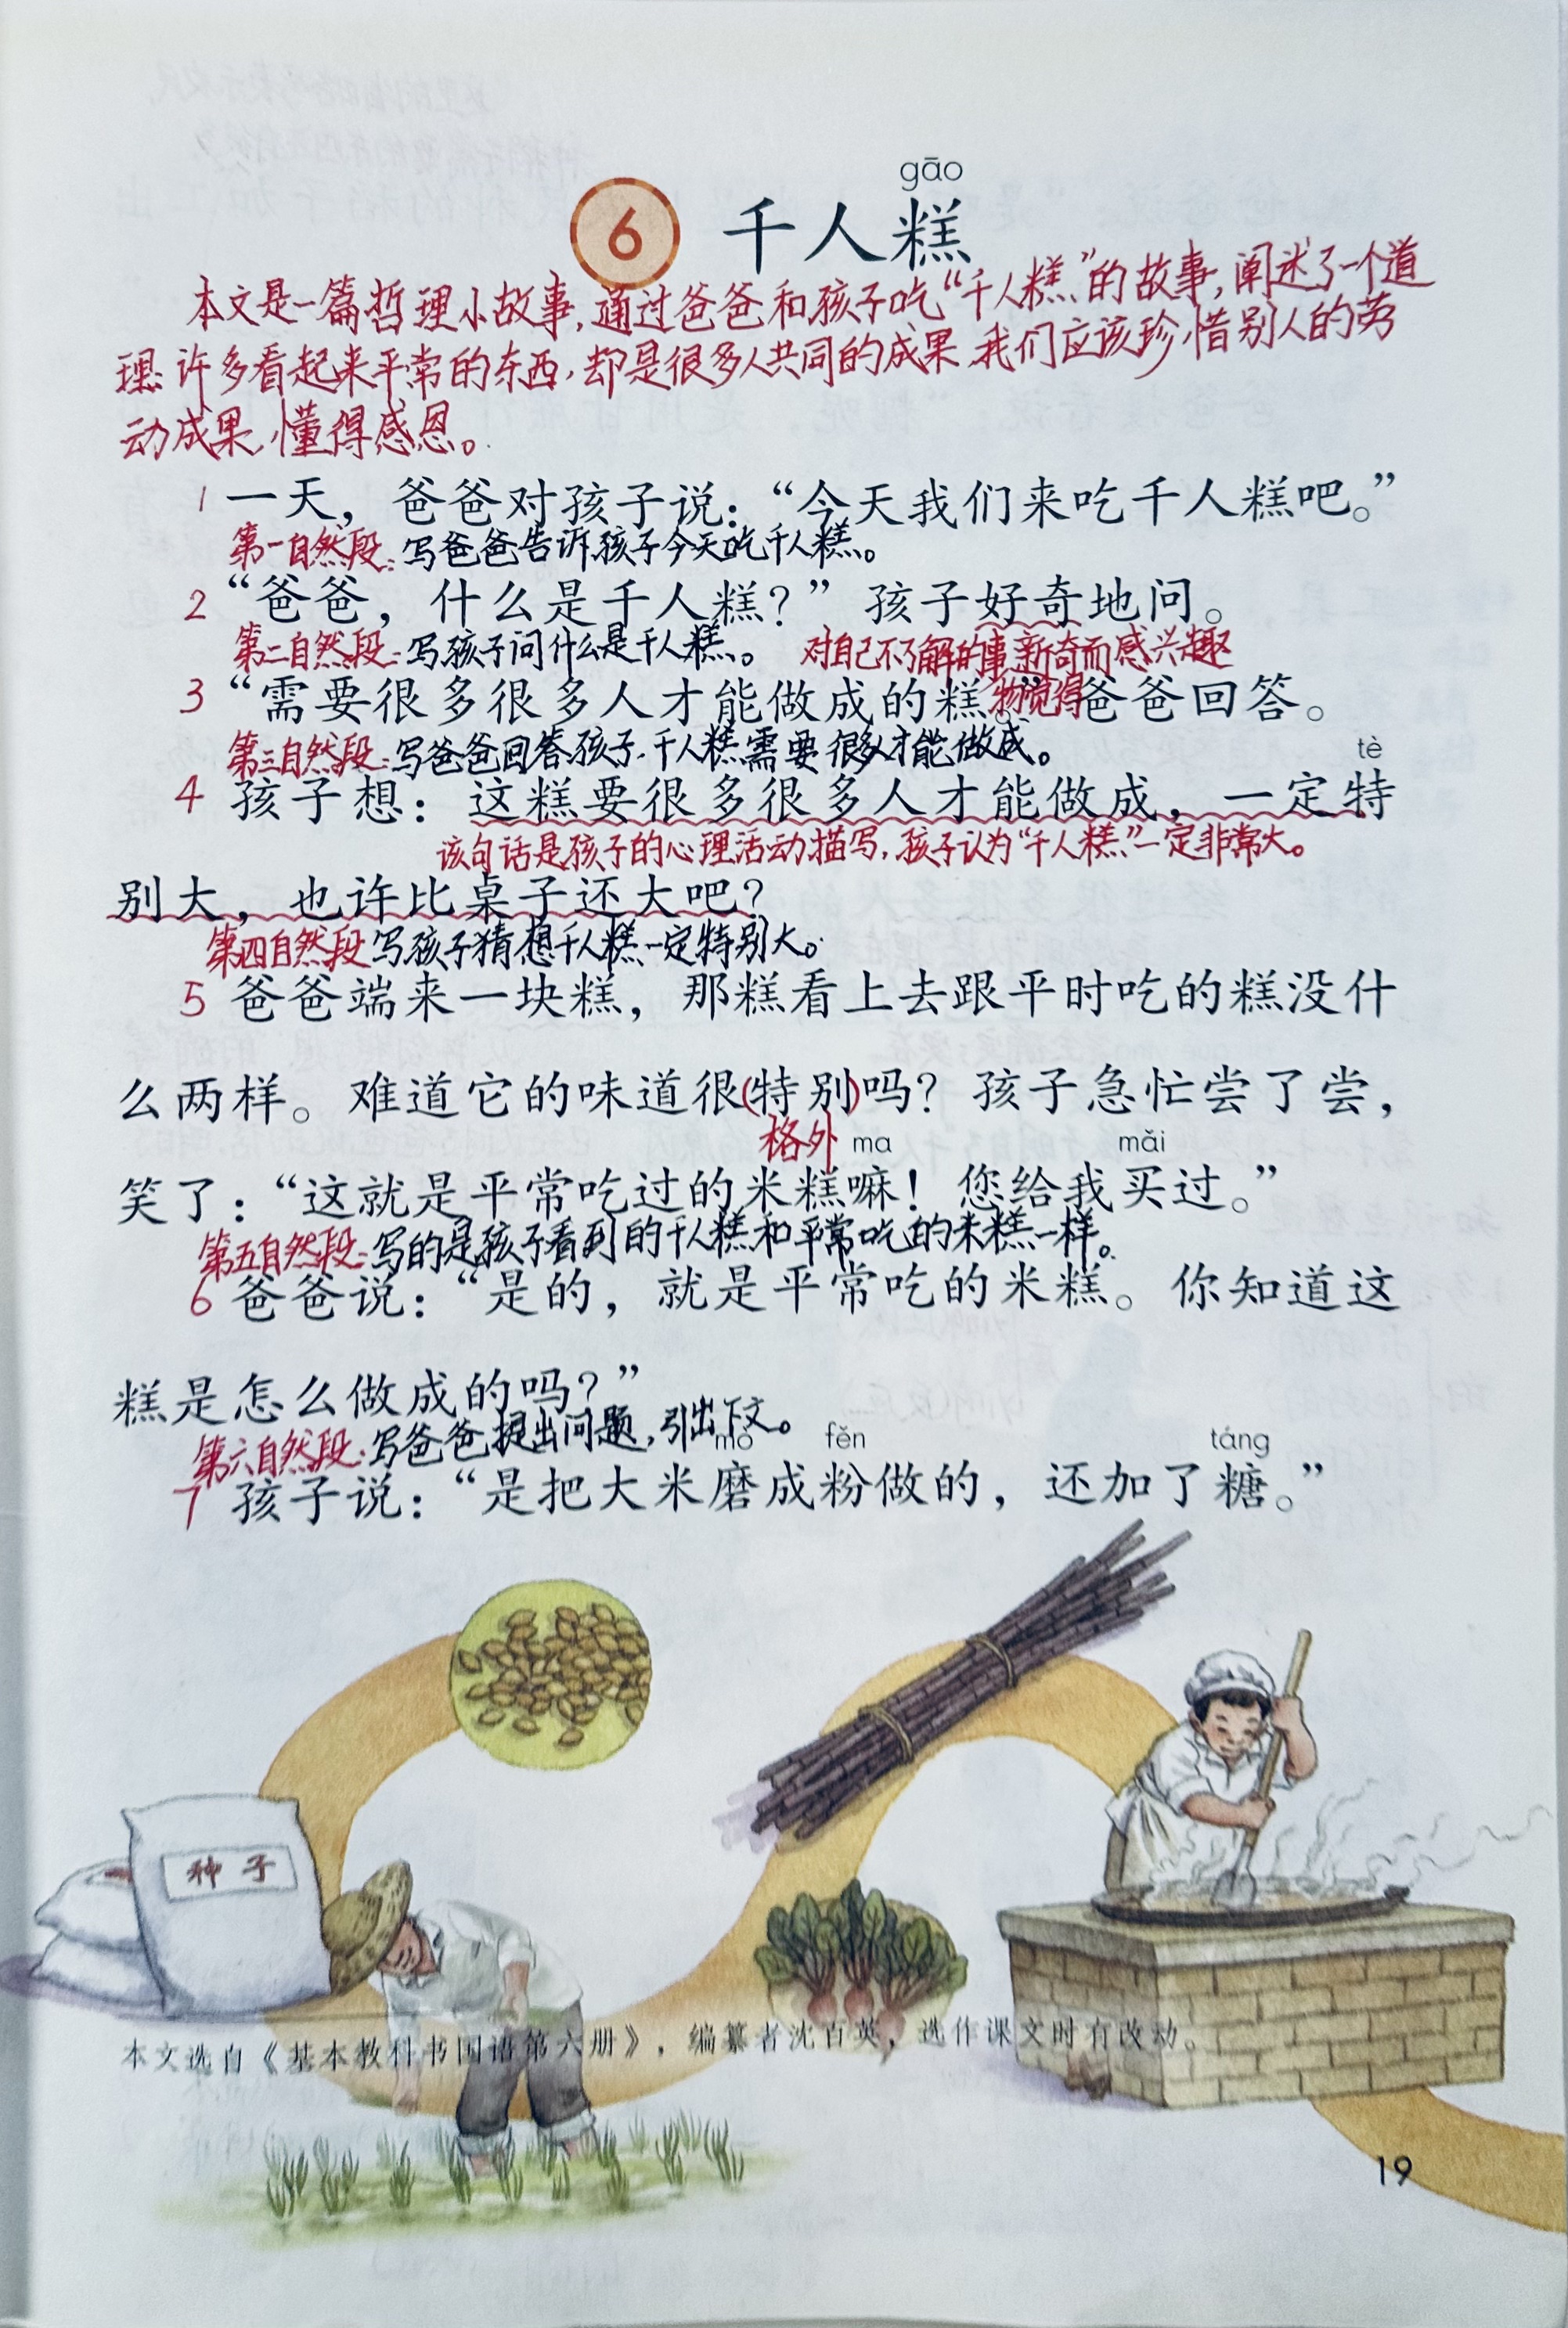 gāo
6 千人糕
本文是一篇哲理小故事,通过爸爸和孩子吃“千人糕”的故事,阐述了一个道
理:许多看起来平常的东西,却是很多人共同的成果.我们应该珍惜别人的劳
动成果,懂得感恩。
1 一天，爸爸对孩子说：“今天我们来吃千人糕吧。”
第一自然段:写爸爸告诉孩子今天吃千人糕。
2 “爸爸，什么是千人糕？”孩子好奇地问。
第二自然段:写孩子问什么是千人糕。 对自己不了解的事新奇而感兴趣
物觉得
3 “需要很多很多人才能做成的糕。”爸爸回答。
第三自然段:写爸爸回答孩子,千人糕需要很多人才能做成。
tè
4 孩子想：这糕要很多很多人才能做成，一定特
该句话是孩子的心理活动描写,孩子认为“千人糕”一定非常大。
别大，也许比桌子还大吧？
第四自然段写孩子猜想千人糕一定特别大。
5 爸爸端来一块糕，那糕看上去跟平时吃的糕没什
么两样。难道它的味道很(特别)吗？孩子急忙尝了尝，
格外 ma mǎi
笑了：“这就是平常吃过的米糕嘛！您给我买过。”
第五自然段:写的是孩子看到的千人糕和平常吃的米糕一样。
6 爸爸说：“是的，就是平常吃的米糕。你知道这
糕是怎么做成的吗？”
第六自然段:写爸爸提出问题,引出下文。
mò fěn táng
7 孩子说：“是把大米磨成粉做的，还加了糖。”
种子
本文选自《基本教科书国语第六册》，编纂者沈百英，选作课文时有改动。
19